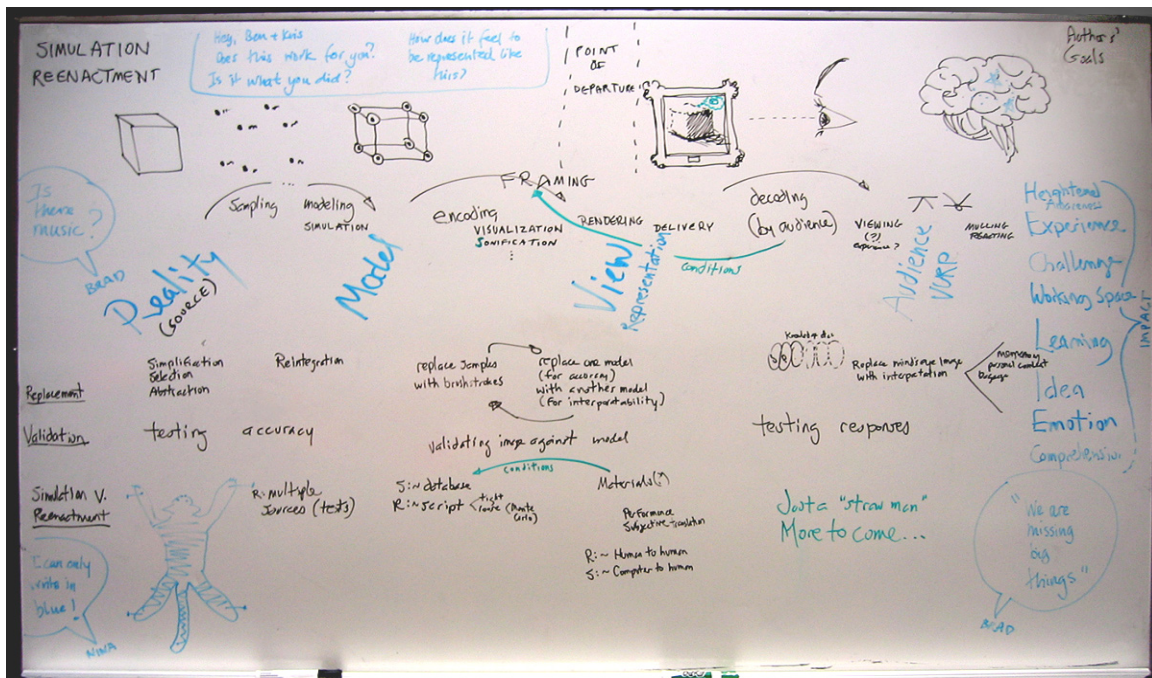 SIMULATION
REENACTMENT
Hey, Ben + Kris
Does this work for you?
Is it what you did?
How does it feel to
be represented like
this?
POINT
OF
DEPARTURE
Authors'
Goals
Is
there
music?
BRAD
Sampling
...
modeling
SIMULATION
FRAMING
encoding
VISUALIZATION
SONIFICATION
RENDERING
DELIVERY
decoding
(by audience)
conditions
VIEWING
(?)
experience?
MULLING
REACTING
Reality
(SOURCE)
Model
View
Representation
Audience
VURP
Heightened
Awareness
Experience
Challenge
Working Space
Learning
Idea
Emotion
Comprehension
IMPACT
Replacement
Simplification
Selection
Abstraction
Reintegration
replace samples
with brushstrokes
replace one model
(for accuracy)
with another model
(for interpretability)
Knowledge
Replace mind's eye image
with interpretation
personal
baggage
Validation
testing accuracy
validating image against model
testing responses
Simulation V.
Reenactment
R: multiple
sources (tests)
conditions
S:~ database
R:~ script
tight
loose (Monte
Carlo)
Materials(?)
Performance
Subjective translation
R:~ Human to human
S:~ Computer to human
Just a "straw man"
More to come...
I can only
write in
blue!
NINA
"We are
missing
big
things"
BRAD